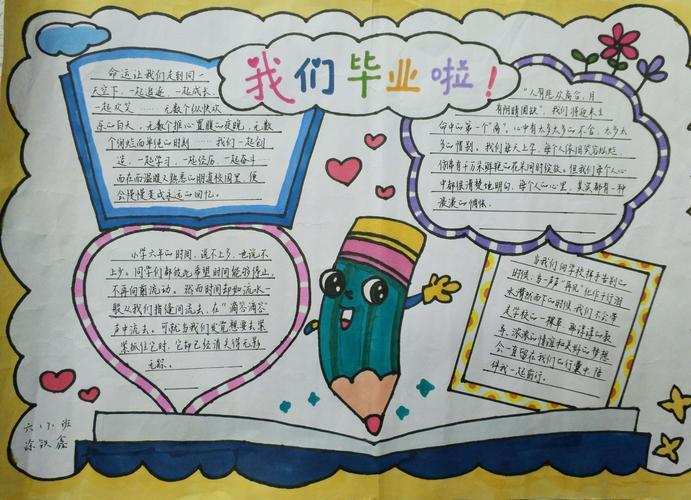 我们毕业啦！
命运让我们走到同一
天空下，一起追逐，一起成长，
一起欢笑……无数个纵快欢
乐的白天，无数个推心置腹的夜晚，无数
个绚烂而单纯的时刻……我们一起创
造，一起学习，一起经历，一起奋斗
而在而温暖又熟悉的明道校园里，便
会慢慢变成永远的回忆。
“人有悲欢离合，月
有阴晴圆缺”，我们将迎来生
命中的第一个“离”。心中有太多太多的不舍，太多太
多的惜别。我们每天上学，每个人依旧笑容灿烂，
仿佛有千万朵鲜艳的花朵同时绽放。但我们每个人心
中都很清楚地明白，每个人的心里，其实都有一种
最淡的惆怅。
小学六年的时间，说不上多，也说不
上少。同学们都彼此希望时间能够停止，
不再向前流动。然而时间却如流水一
般从我们指缝间流去，在“滴答滴答”
声中流去。可就当我们发觉想要去紧
紧抓住它时，它却已经消失得无影
无踪。
当我们向学校挥手告别的
时候，当一声声“再见”化作行行泪
水潸然而下的时候，我们不会带
走学校的一棵草，
乐，浓浓的情谊和美好的梦想
会一直留在我们心行囊中，陪
伴我一起前行。
六（7）班